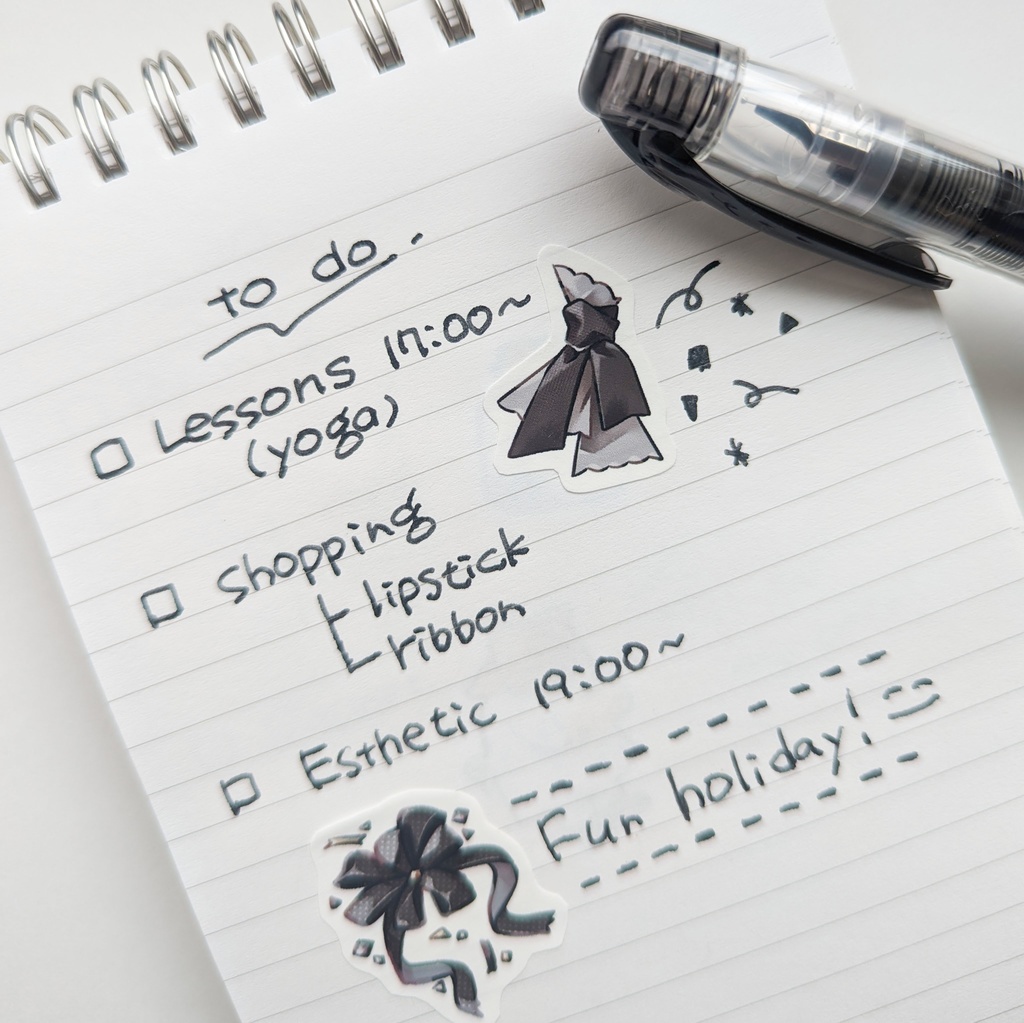 to do.
□ Lessons 17:00~
(yoga)
□ Shopping
lipstick
ribbon
□ Esthetic 19:00~
Fun holiday!